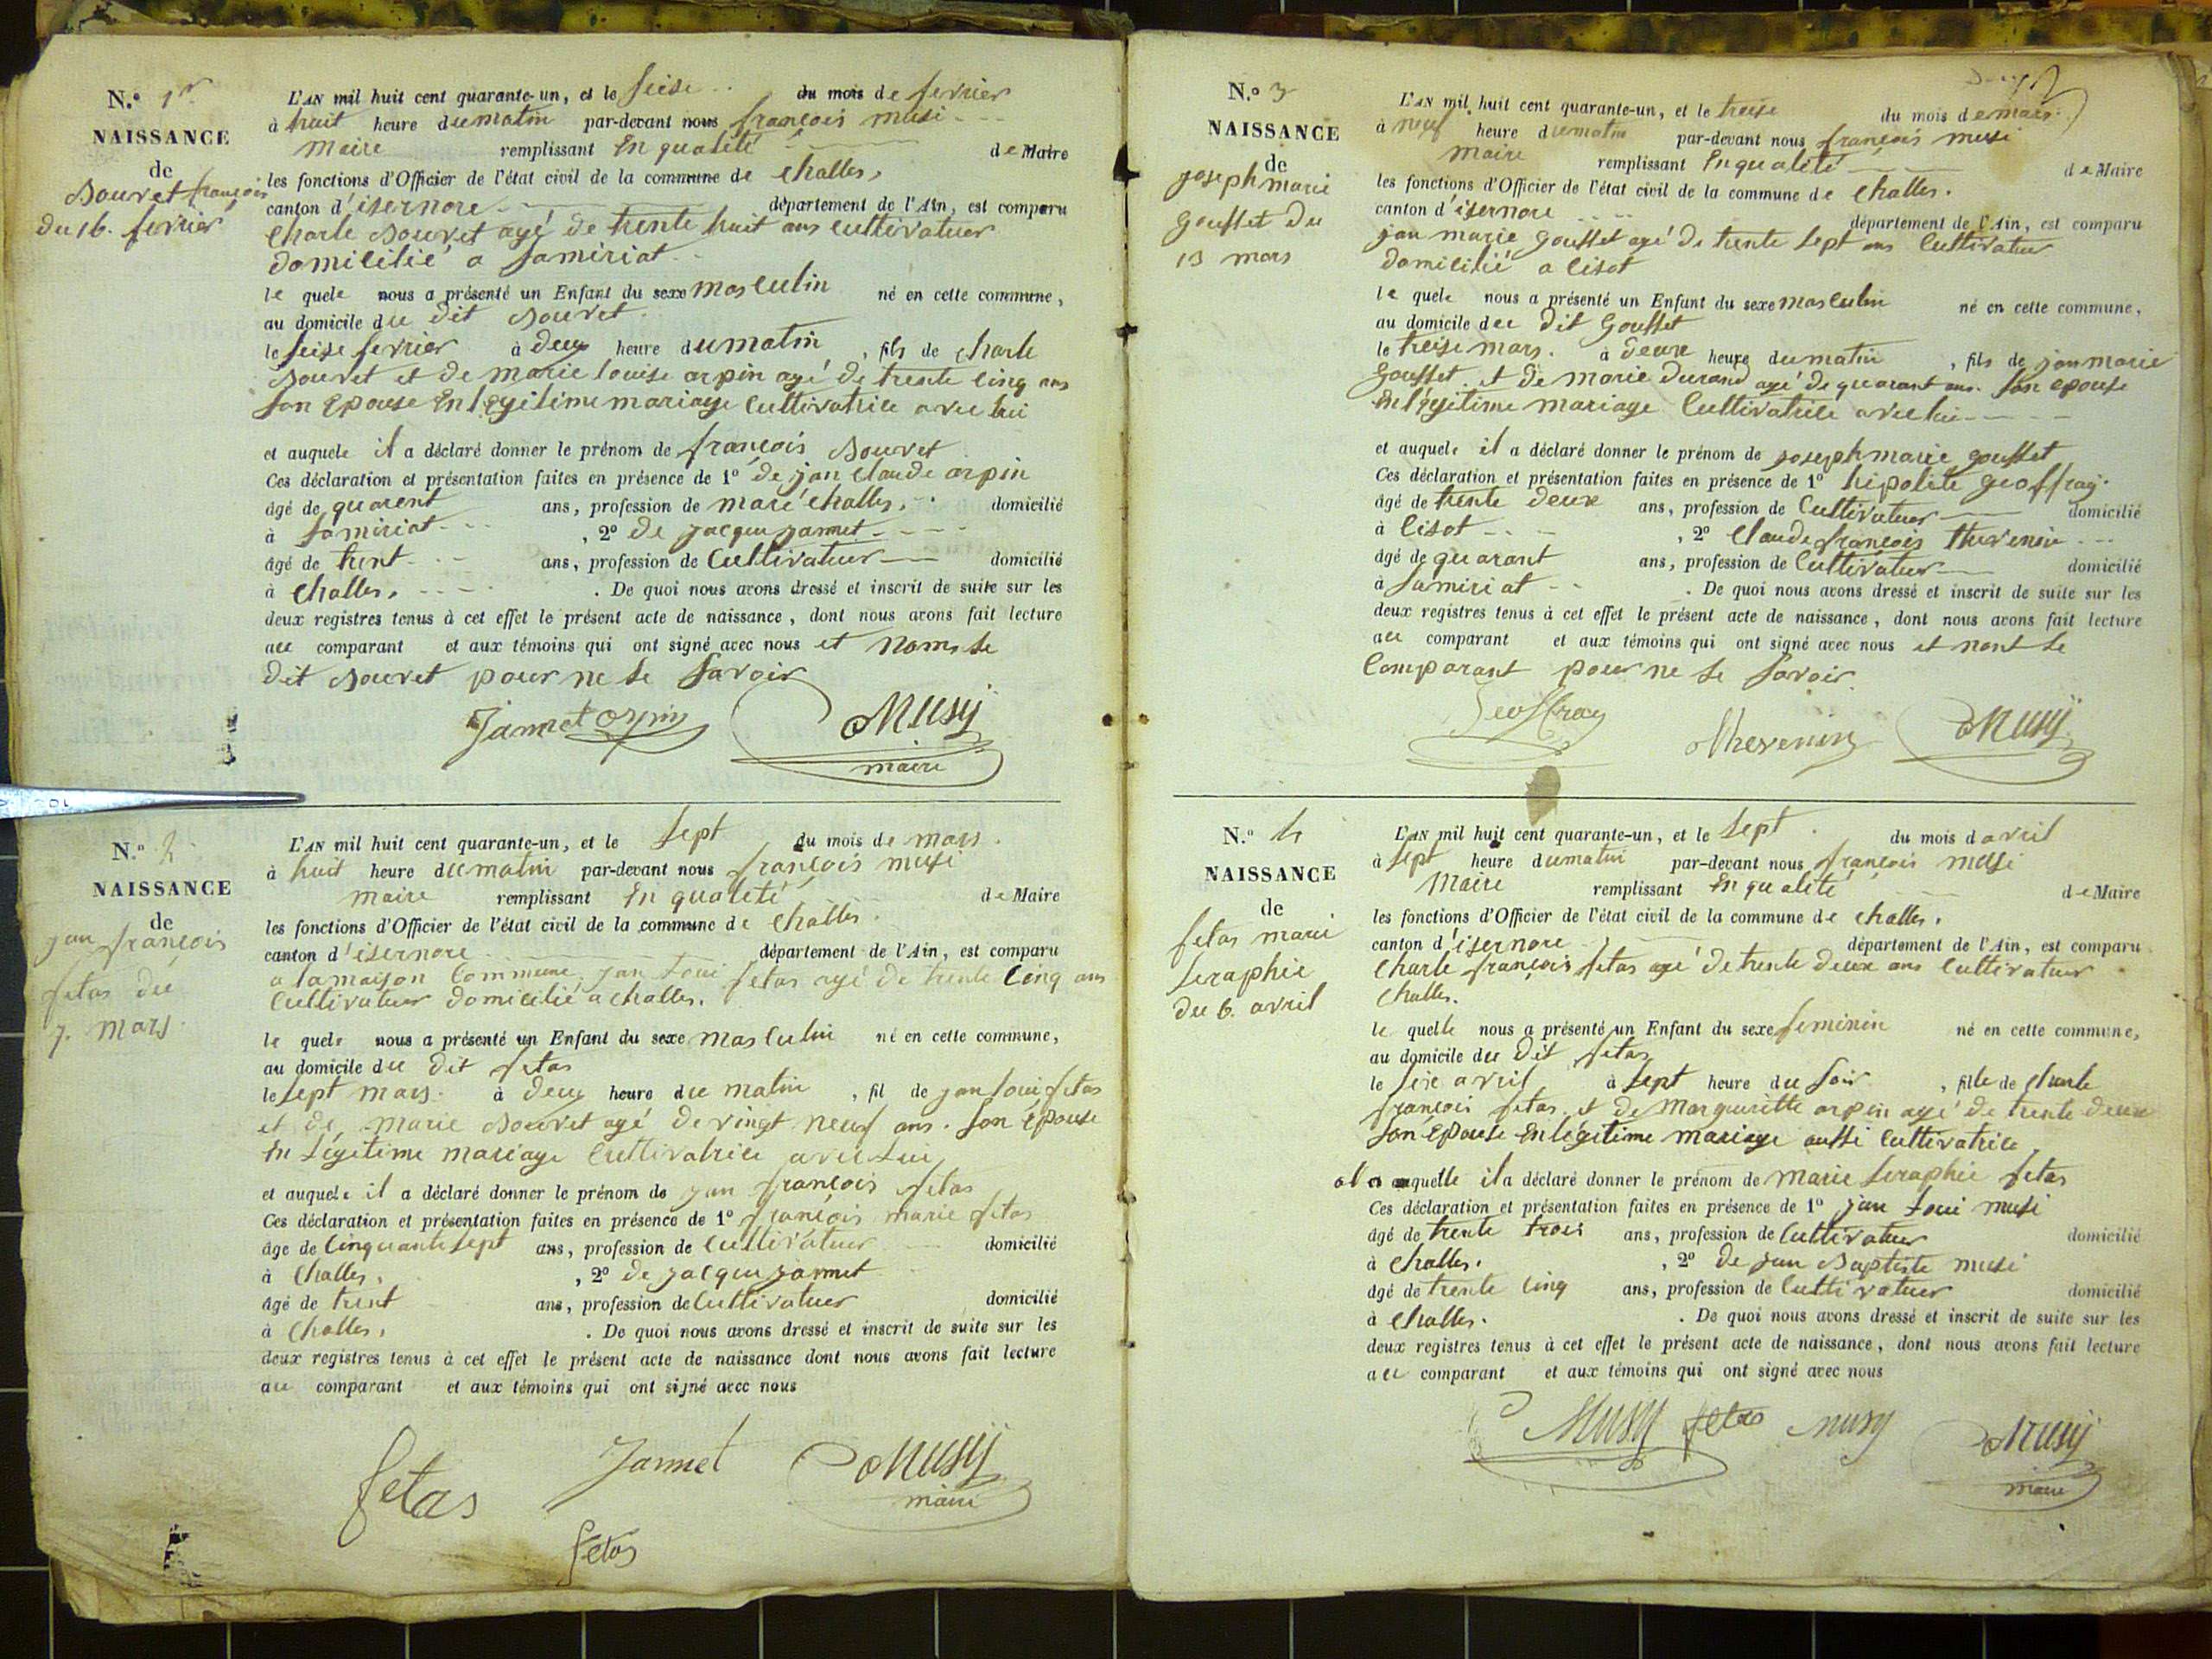 N.º 1er
NAISSANCE
de
Bouvet françois
du 16. fevrier
L'AN mil huit cent quarante-un, et le seise du mois de fevrier
à huit heure du matin par-devant nous françois musi
maire remplissant En qualité de Maire
les fonctions d'Officier de l'état civil de la commune de challes.
canton d'isernore département de l'Ain, est comparu
charle Bouvet agé de trente huit ans cultivatuer
domicilié a Samiriat
le quele nous a présenté un Enfant du sexe masculin né en cette commune,
au domicile du dit Bouvet.
le seise fevrier à deux heure du matin, fils de charle
Bouvet et de marie louise arpin agé de trente cinq ans
son Epouse En legitime mariage cultivatrice avec lui
et auquele il a déclaré donner le prénom de françois Bouvet
Ces déclaration et présentation faites en présence de 1º de jan claude arpin
âgé de quarent ans, profession de maré challes. domicilié
à Samiriat , 2º de jacque janmet
âgé de trent ans, profession de Cultivatuer domicilié
à challes. . De quoi nous avons dressé et inscrit de suite sur les
deux registres tenus à cet effet le présent acte de naissance, dont nous avons fait lecture
au comparant et aux témoins qui ont signé avec nous et nom le
dit Bouvet pour ne le savoir
Janmet arpin Musy
maire
N.º 2
NAISSANCE
de
jan françois
fetas du
7. mars
L'AN mil huit cent quarante-un, et le sept du mois de mars.
à huit heure du matin par-devant nous françois musi
maire remplissant En qualité de Maire
les fonctions d'Officier de l'état civil de la commune de challes.
canton d'isernore département de l'Ain, est comparu
a la maison Commune, jan loui fetas agé de trente cinq ans
cultivatuer domicilié a challes.
le quele nous a présenté un Enfant du sexe masculin né en cette commune,
au domicile du dit fetas
le sept mars. à deux heure du matin, fil de jan loui fetas
et de marie Bouvet agé de vingt neuf ans. son épouse
En légitime mariage cultivatrice avec lui
et auquele il a déclaré donner le prénom de jan françois fetas
Ces déclaration et présentation faites en présence de 1º françois marie fetas
âge de cinquante sept ans, profession de cultivatuer domicilié
à challes. , 2º de jacque janmet
âgé de trent ans, profession de cultivatuer domicilié
à challes. . De quoi nous avons dressé et inscrit de suite sur les
deux registres tenus à cet effet le présent acte de naissance dont nous avons fait lecture
au comparant et aux témoins qui ont signé avec nous
fetas Janmet Musy
maire
fetas
N.º 3
NAISSANCE
de
joseph marie
gouffet du
13 mars
L'AN mil huit cent quarante-un, et le treise du mois de mars
à neuf heure du matin par-devant nous françois musi
maire remplissant En qualité de Maire
les fonctions d'Officier de l'état civil de la commune de challes.
canton d'isernore département de l'Ain, est comparu
jan marie gouffet agé de trente sept ans Cultivatuer
domicilié a lisot
le quele nous a présenté un Enfant du sexe masculin né en cette commune,
au domicile du dit gouffet
le treise mars. à deux heure du matin, fils de jan marie
gouffet. et de marie durand agé de quarant ans. son epouse
En légitime mariage Cultivatrice avec lui
et auquele il a déclaré donner le prénom de joseph marie gouffet
Ces déclaration et présentation faites en présence de 1º hipolite geoffray.
âgé de trente deux ans, profession de Cultivatuer domicilié
à lisot , 2º Claude françois thevenin
âgé de quarant ans, profession de Cultivatuer domicilié
à Samiriat . De quoi nous avons dressé et inscrit de suite sur les
deux registres tenus à cet effet le présent acte de naissance, dont nous avons fait lecture
au comparant et aux témoins qui ont signé avec nous et nont le
Comparant pour ne le savoir.
Geoffray Thevenin Musy
N.º 4
NAISSANCE
de
fetas marie
seraphie
du 6. avril
L'AN mil huit cent quarante-un, et le sept du mois d avril
à sept heure du matin par-devant nous françois musi
Maire remplissant En qualité de Maire
les fonctions d'Officier de l'état civil de la commune de challes.
canton d'isernore département de l'Ain, est comparu
Charle françois fetas agé de trente deux ans cultivatuer
challes.
le quelle nous a présenté un Enfant du sexe feminin né en cette commune,
au domicile du dit fetas
le sixe avril à sept heure du soir, fille de charle
françois fetas. et de margueritte arpin agé de trente deux
son épouse En légitime mariage aussi cultivatrice
a laquelle il a déclaré donner le prénom de marie seraphie fetas
Ces déclaration et présentation faites en présence de 1º jan loui musi
âgé de trente trois ans, profession de Cultivatuer domicilié
à challes. , 2º de jan Baptiste musi
âgé de trente cinq ans, profession de Cultivatuer domicilié
à challes. . De quoi nous avons dressé et inscrit de suite sur les
deux registres tenus à cet effet le présent acte de naissance, dont nous avons fait lecture
au comparant et aux témoins qui ont signé avec nous
Musy fetas musy Musy
maire